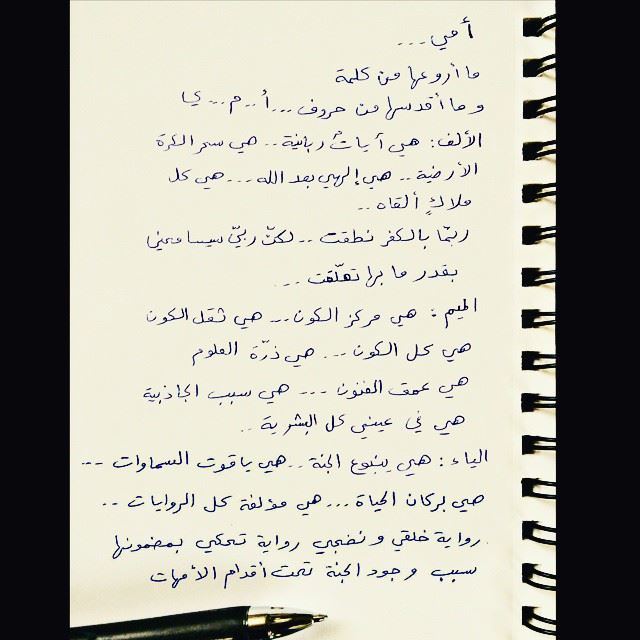 أمي...
ما أروعها من كلمة
و ما أقدسها من حروف...أُ..م...ي
الألف: هي آياتٌ ربانية.. هي سحر الكرة
الأرضية.. هي إلهي بعد الله...هي كل
ملاكٍ ألقاه..
ربّما بالكفر نطقت.. لكنّ ربيّ سيسامحني
بقدر ما بها تعلّقت...
الميم: هي مركز الكون... هي ثقل الكون
هي كل الكون... هي ذرّة العلوم
هي عمق الفنون... هي سبب الجاذبية
هي في عيني كل البشرية..
الياء: هي ينبوع الجنة..هي ياقوت السماوات...
هي بركان الحياة...هي مؤلفة كل الروايات..
رواية خلقي و نضجي رواية تحكي بمضمونها
سبب وجود الجنة تحت أقدام الأمهات